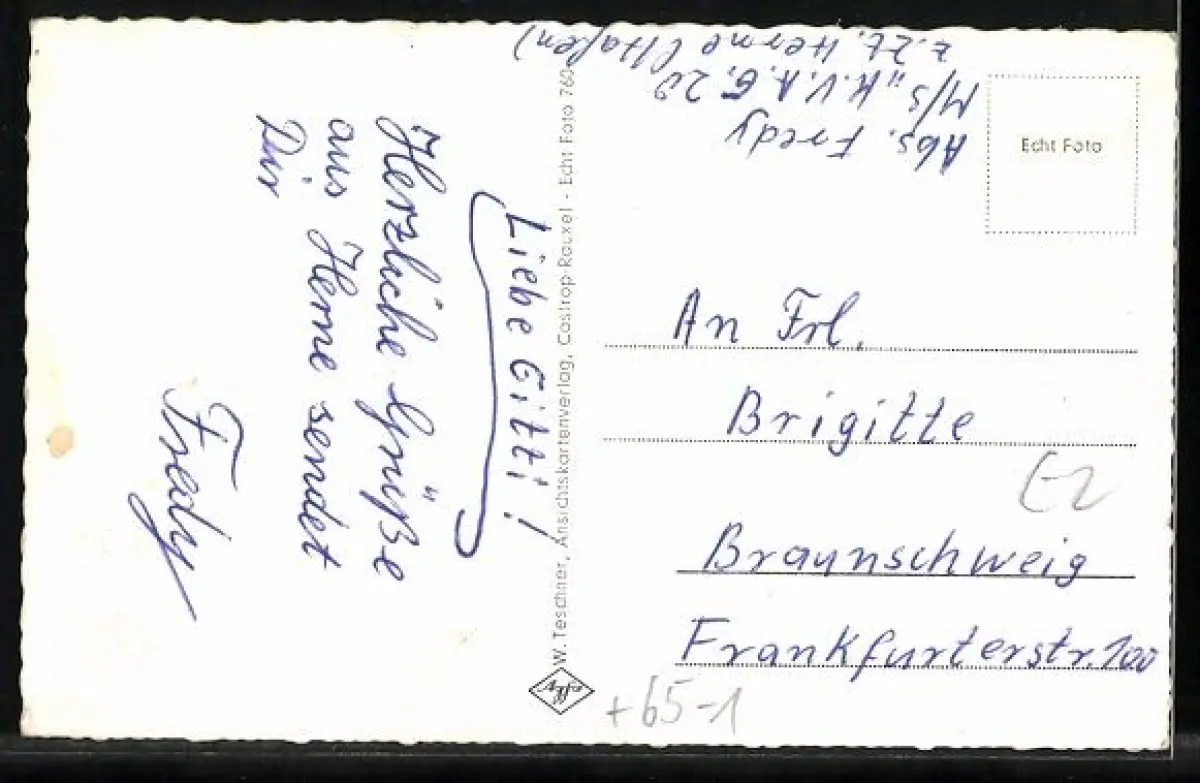 Liebe Gitti!
Herzliche Grüße
aus Herne sendet
Dir
Fredy
W. Teschner, Ansichtskartenverlag, Castrop-Rauxel - Echt Foto 760
Abs. Fredy
M/S „K.V.A.G. 20
z. Zt. Herne (Hafen)
Echt Foto
An Frl.
Brigitte
Braunschweig
Frankfurterstr. 100
E-2
+65-1